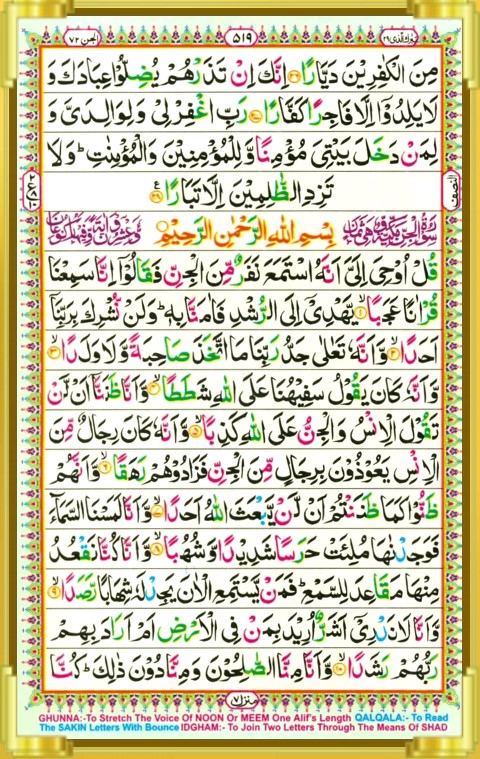 تبٰرك الذی ۲۹
۵۱۹
الجن ۷۲
مِنَ الْكٰفِرِیْنَ دَیَّارًا ۟ اِنَّكَ اِنْ تَذَرْهُمْ یُضِلُّوْا عِبَادَكَ وَ
لَا یَلِدُوْۤا اِلَّا فَاجِرًا كَفَّارًا ۟ رَبِّ اغْفِرْ لِیْ وَ لِوَالِدَیَّ وَ
لِمَنْ دَخَلَ بَیْتِیَ مُؤْمِنًا وَّ لِلْمُؤْمِنِیْنَ وَ الْمُؤْمِنٰتِ ؕ وَ لَا
تَزِدِ الظّٰلِمِیْنَ اِلَّا تَبَارًا ۟
النصف
بِسْمِ اللّٰهِ الرَّحْمٰنِ الرَّحِیْمِ
قُلْ اُوْحِیَ اِلَیَّ اَنَّهُ اسْتَمَعَ نَفَرٌ مِّنَ الْجِنِّ فَقَالُوْۤا اِنَّا سَمِعْنَا
قُرْاٰنًا عَجَبًا ۟ۙ۱ یَّهْدِیْۤ اِلَی الرُّشْدِ فَاٰمَنَّا بِهٖ ؕ وَ لَنْ نُّشْرِكَ بِرَبِّنَاۤ
اَحَدًا ۟ۙ۲ وَّ اَنَّهٗ تَعٰلٰی جَدُّ رَبِّنَا مَا اتَّخَذَ صَاحِبَةً وَّ لَا وَلَدًا ۟ۙ۳
وَّ اَنَّهٗ كَانَ یَقُوْلُ سَفِیْهُنَا عَلَی اللّٰهِ شَطَطًا ۟ۙ۴ وَّ اَنَّا ظَنَنَّاۤ اَنْ لَّنْ
تَقُوْلَ الْاِنْسُ وَ الْجِنُّ عَلَی اللّٰهِ كَذِبًا ۟ۙ۵ وَّ اَنَّهٗ كَانَ رِجَالٌ مِّنَ
الْاِنْسِ یَعُوْذُوْنَ بِرِجَالٍ مِّنَ الْجِنِّ فَزَادُوْهُمْ رَهَقًا ۟ۙ۶ وَّ اَنَّهُمْ
ظَنُّوْا كَمَا ظَنَنْتُمْ اَنْ لَّنْ یَّبْعَثَ اللّٰهُ اَحَدًا ۟ۙ۷ وَّ اَنَّا لَمَسْنَا السَّمَآءَ
فَوَجَدْنٰهَا مُلِئَتْ حَرَسًا شَدِیْدًا وَّ شُهُبًا ۟ۙ۸ وَّ اَنَّا كُنَّا نَقْعُدُ
مِنْهَا مَقَاعِدَ لِلسَّمْعِ ؕ فَمَنْ یَّسْتَمِعِ الْاٰنَ یَجِدْ لَهٗ شِهَابًا رَّصَدًا ۟ۙ۹
وَّ اَنَّا لَا نَدْرِیْۤ اَشَرٌّ اُرِیْدَ بِمَنْ فِی الْاَرْضِ اَمْ اَرَادَ بِهِمْ
رَبُّهُمْ رَشَدًا ۟ۙ۱۰ وَّ اَنَّا مِنَّا الصّٰلِحُوْنَ وَ مِنَّا دُوْنَ ذٰلِكَ ؕ كُنَّا
منزل ۷
GHUNNA:-To Stretch The Voice Of NOON Or MEEM One Alif's Length QALQALA:- To Read
The SAKIN Letters With Bounce IDGHAM:- To Join Two Letters Through The Means Of SHAD